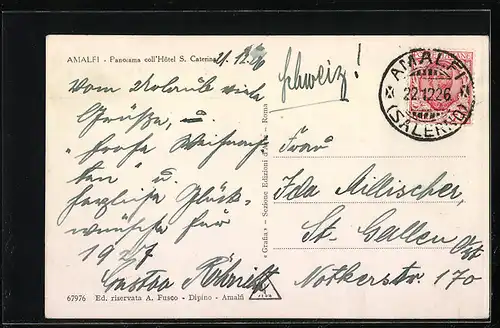 AMALFI - Panorama coll'Hôtel S. Caterina
21.12.26
Schweiz!
AMALFI
22.12.26
(SALERNO)
Vom viele
Grüße, u.
"frohe Weihnach-
ten" u.
herzliche Glück-
wünsche für
1927
Gustav
Frau
Ida Millischer,
St. Gallen Ost
Notkerstr. 170
«Grafia» - Sezione Edizioni d'Arte - Roma
67976 Ed. riservata A. Fusco - Dipino - Amalfi